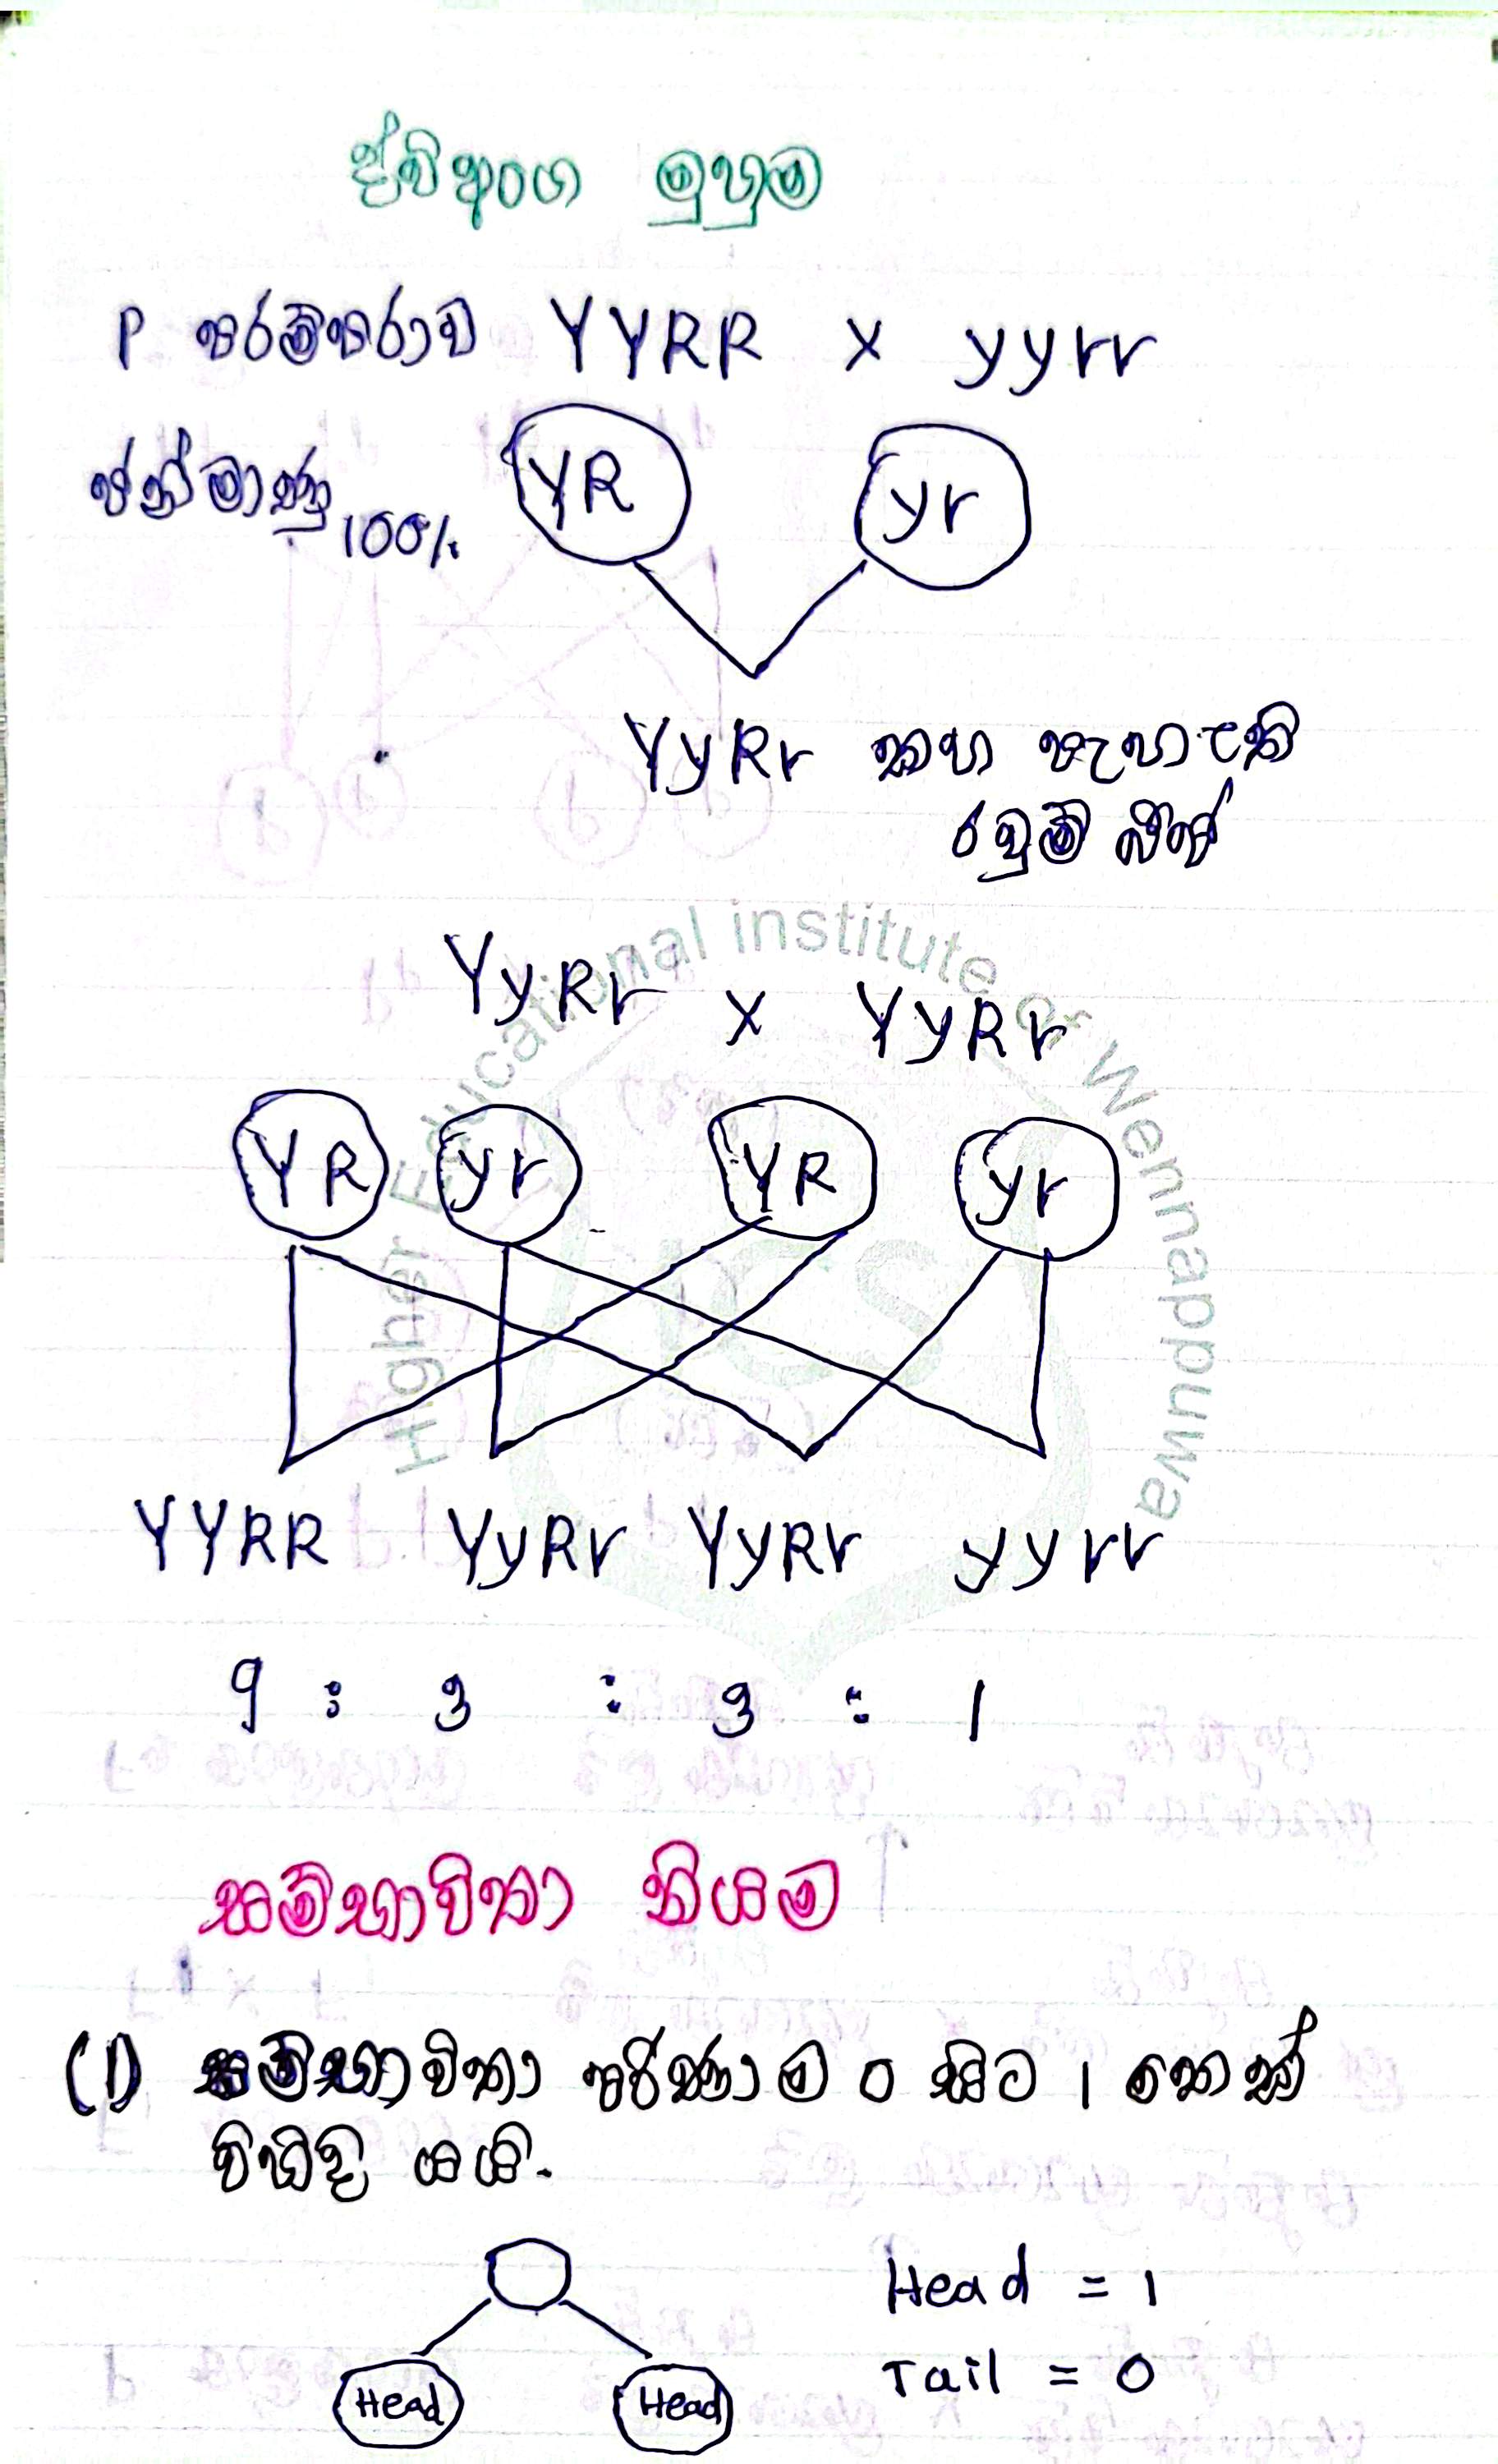 ද්විඅංග මුහුම
P පරම්පරාව YYRR x yyrr
ජන්මාණු 100% YR yr
YyRr කහ පැහැති
රවුම් බීජ
YyRr x YyRr
YR yr YR yr
YYRR YyRr YyRr yyrr
9 : 3 : 3 : 1
සම්භාවිතා නියම
(1) සම්භාවිතා පරිණාම 0 සිට 1 තෙක්
විහිදී යයි.
Head = 1
Head Head Tail = 0
Higher Educational institute of Wennappuwa
ICS